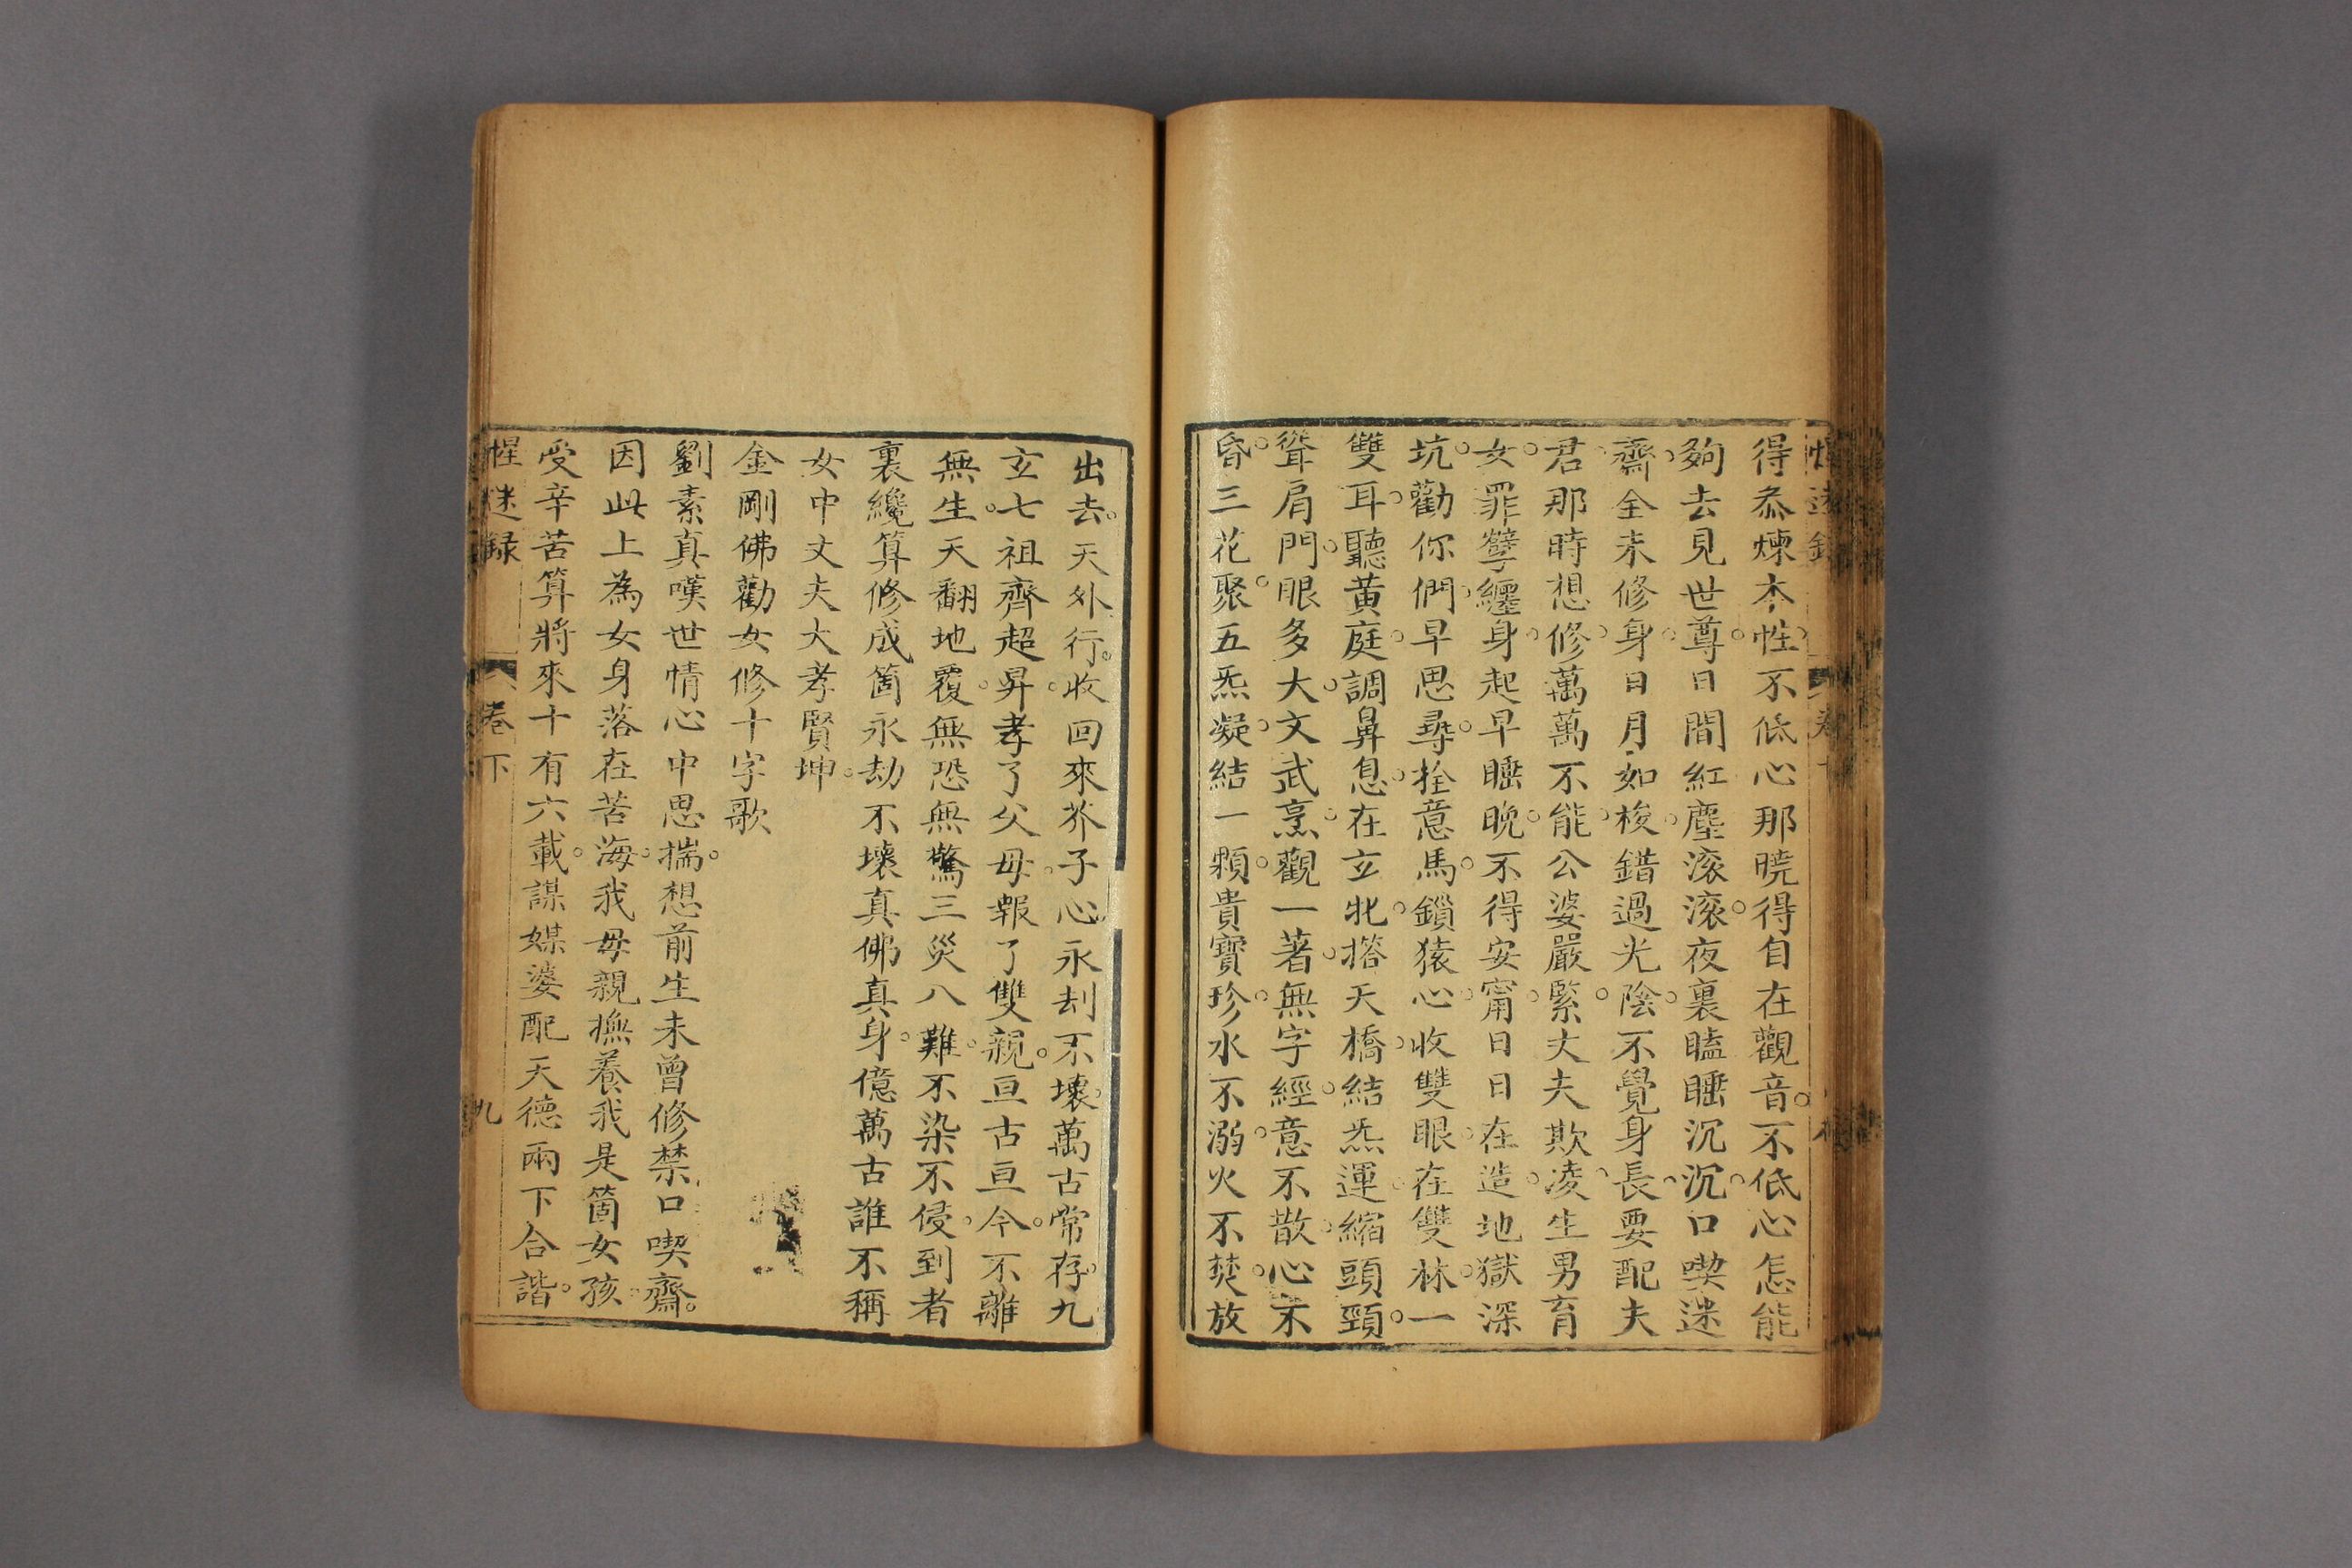 得叅煉本性不低心那曉得自在觀音。不低心怎能
夠去見世尊。日間紅塵滚滚。夜裏瞌睡沉沉。口喫迷
齋。全未修身。日月如梭。錯過光陰。不覺身長。要配夫
君。那時想修。萬萬不能。公婆嚴緊。丈夫欺凌。生男育
女。罪孽纏身。起早睡晚。不得安甯。日日在造。地獄深
坑。勸你們。早思尋。拴意馬。鎖猿心。收雙眼。在雙林。一
雙耳。聽黃庭。調鼻息。在玄牝。搭天橋。結炁運。縮頭頸。
聳肩門。眼多大。文武烹。觀一著。無字經。意不散。心不
昏。三花聚。五炁凝。結一顆。貴寶珍。水不溺。火不焚。放
出去。天外行。收回來。芥子心。永刦不壞。萬古常存。九
玄七祖齊超昇。孝了父母。報了雙親。亘古亘今。不離
無生。天翻地覆。無恐無驚。三災八難。不染不侵。到者
裏纔算修成箇永劫不壞真佛真身。億萬古誰不稱
女中丈夫大孝賢坤。
金剛佛勸女修十字歌
劉素真嘆世情心中思揣。想前生未曾修禁口喫齋。
因此上為女身落在苦海。我母親撫養我是箇女孩。
受辛苦算將來十有六載。謀媒婆配天德兩下合諧。
惺迷録 卷下 九